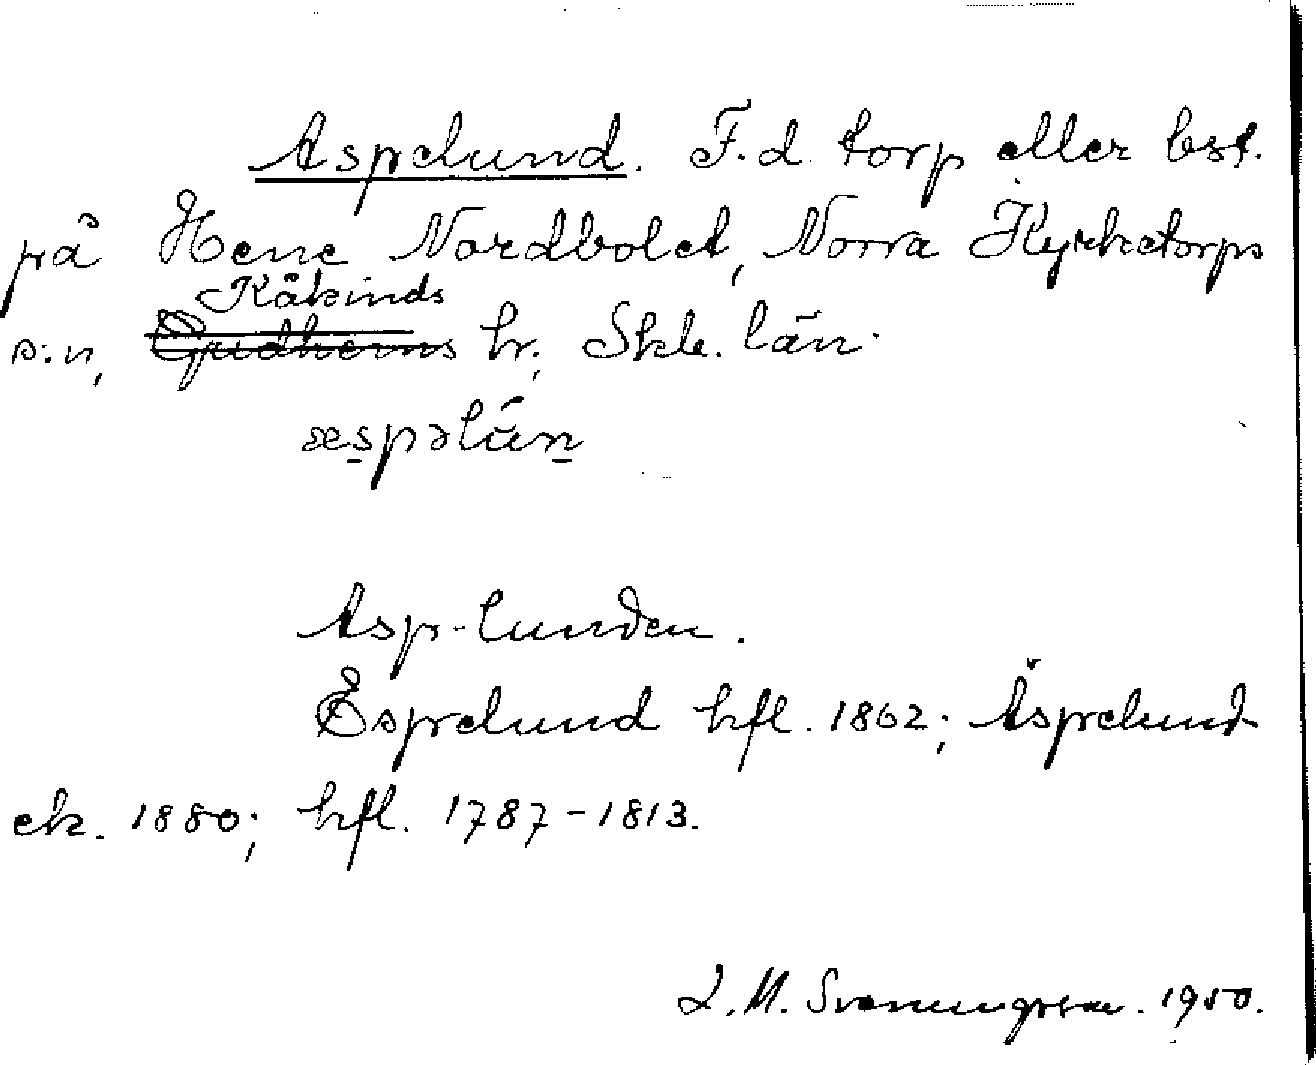 Aspelund. F.d. torp eller bst.
på Hene Nordbolet, Norra Kyrketorps
Kåkinds
s:n, Gudhems hr, Skb. län.
æspəlún
Asp-lunden.
Espelund hfl. 1862; Äspelund
ek. 1880; hfl. 1787-1813.
L.M. Svenungsson. 1950.